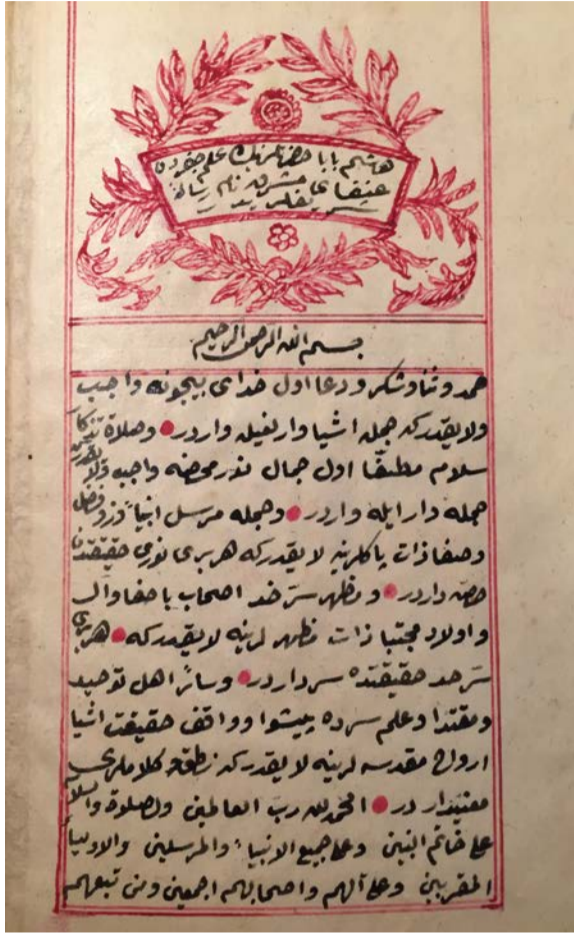 هاشم بابا حضرتلرینك علم جفردن
عنقای مشرق نام رسالهٔ
شریفلریدر
بسم الله الرحمن الرحیم
حمد و ثنا و شكر و دعا اول خدای بیچونه واجب
ولایقدركه جمله اشیا وارلغیله واردر وصلاة
سلام مطلقا اول جمال نور محضه واجب ولا یقدر
جمله دار ایله واردر وجمله مرسل انبیاء
وصفا ذات پاكلرینه لایقدركه هر بری نوری حقیقتدن
حصه داردر ومظهر سر خدا اصحاب باصفا وآل
واولاد مجتبا ذات مظهرلرینه لایقدركه هر بری
سر حد حقیقتده سرداردر وسائر اهل توحید
ومقتدا وعلم سرده پیشوا وواقف حقیقت اشیا
ارواح مقدسه لرینه لایقدركه نطق وكلاملری
معتبردار در الحمد لله رب العالمین والصلوة والسلام
علی خاتم النبین وعلی جمیع الانبیاء والمرسلین والاولیاء
المقربین وعلی آلهم واصحابهم اجمعین ومن تبعهم